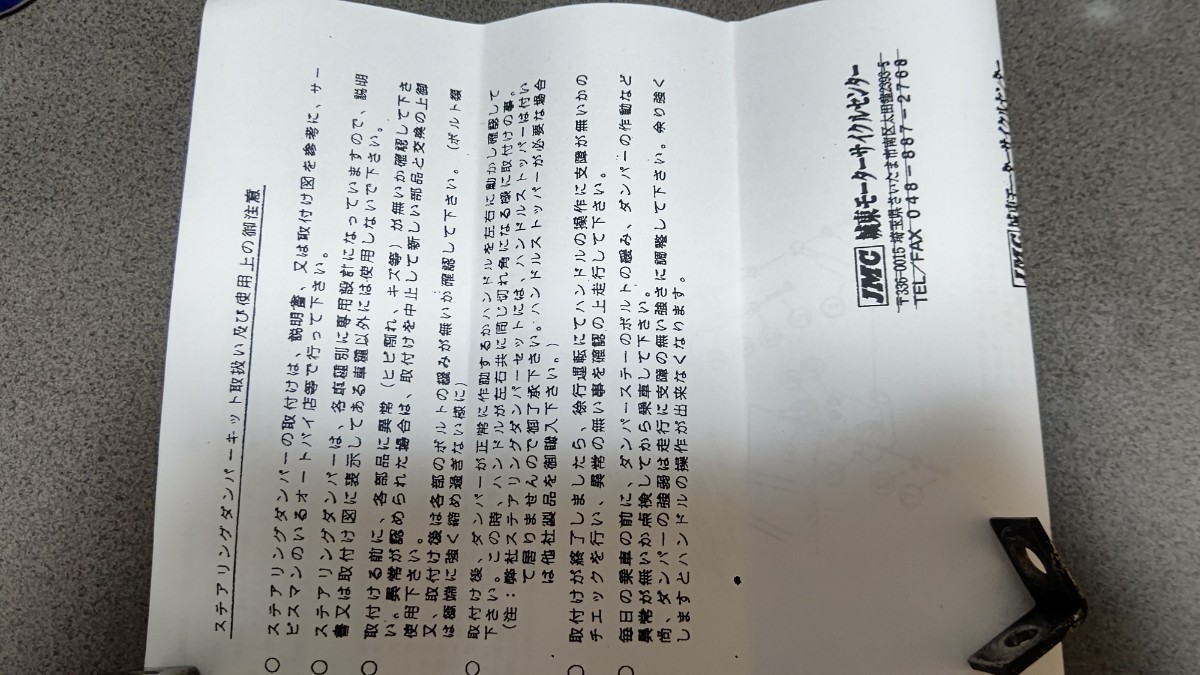 ステアリングダンパーキット取扱い及び使用上の御注意
○ ステアリングダンパーの取付けは、説明書、又は取付け図を参考に、サー
ビスマンのいるオートバイ店等で行って下さい。
○ ステアリングダンパーは、各車種別に専用設計になっていますので、説明
書又は取付け図に表示してある車種以外には使用しないで下さい。
○ 取付ける前に、各部品に異常(ヒビ割れ、キズ等)が無いか確認して下さ
い。異常が認められた場合は、取付けを中止して新しい部品と交換の上御
使用下さい。
又、取付け後は各部のボルトの緩みが無いか確認して下さい。(ボルト類
は極端に強く締め過ぎない様に)
○ 取付け後、ダンパーが正常に作動するかハンドルを左右に動かし確認して
下さい。この時、ハンドルが左右共に同じ切れ角になる様に取付けの事。
(注:弊社ステアリングダンパーセットには、ハンドルストッパーは付い
て居りませんので御了承下さい。ハンドルストッパーが必要な場合
は他社製品を御購入下さい。)
○ 取付けが終了しましたら、徐行運転にてハンドルの操作に支障が無いかの
チエックを行い、異常の無い事を確認の上走行して下さい。
○ 毎日の乗車の前に、ダンパーステーのボルトの緩み、ダンパーの作動など
異常が無いか点検してから乗車して下さい。
尚、ダンパーの強弱は走行に支障の無い強さに調整して下さい。余り強く
しますとハンドルの操作が出来なくなります。
JMC 城東モーターサイクルセンター
〒336-0015 埼玉県さいたま市南区太田窪2393-5
TEL/FAX 048-887-2768
JMC モーターサイクルセンター